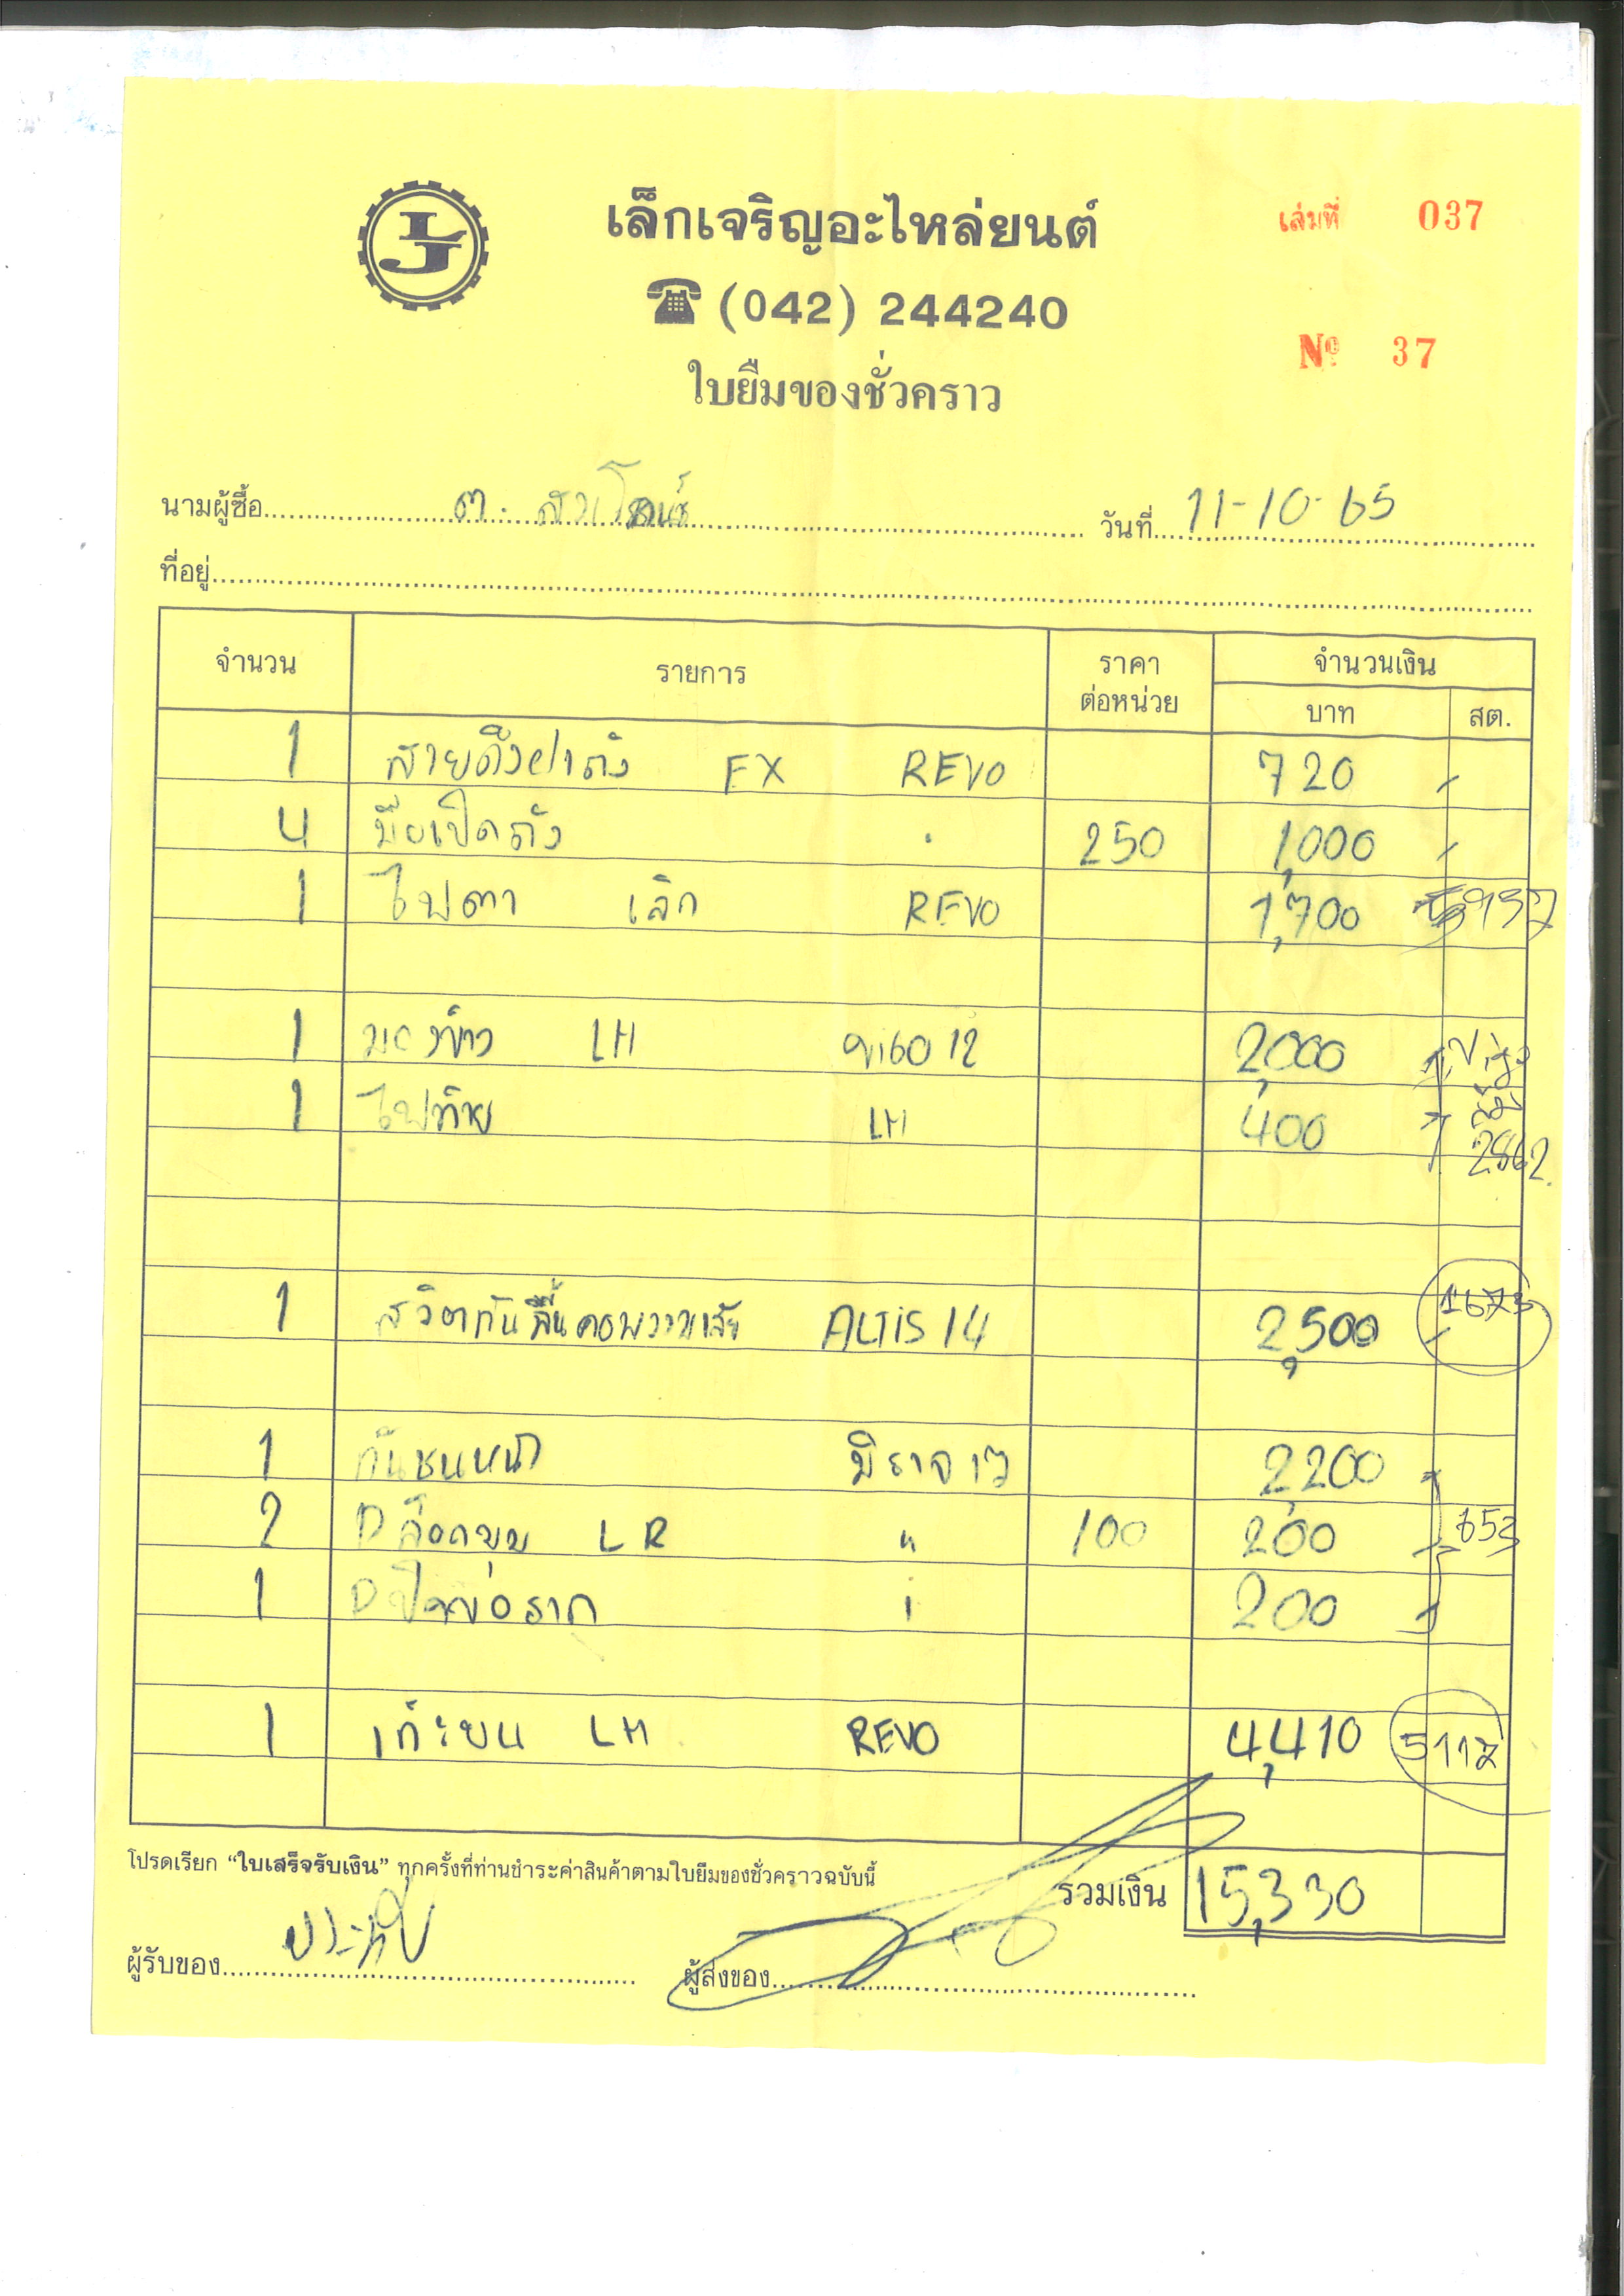 เล็กเจริญอะไหล่ยนต์
เล่มที่ 037
(042) 244240
ใบยืมของชั่วคราว
Nº 37
นามผู้ซื้อ ต.
วันที่ 11-10-65
ที่อยู่
จำนวน รายการ ราคาต่อหน่วย จำนวนเงิน
บาท สต.
1 สายดึงฝาถัง FX REVO 720 -
4 มือเปิดถัง 250 1,000 -
1 ไฟตา เล็ก REVO 1,700
1 มองข้าง LH 12 2,000
1 ไฟท้าย LH 400
2862
1 ALTIS 14 2,500 - 1673
1 กันชนหน้า มิราจ 17 2,200 -
2 ล็อคมุม L R " 100 200 - 653
1 200 -
1 LH REVO 4,410 5117
โปรดเรียก “ใบเสร็จรับเงิน” ทุกครั้งที่ท่านชำระค่าสินค้าตามใบยืมของชั่วคราวฉบับนี้
รวมเงิน 15,330
ผู้รับของ ประทีป
ผู้ส่งของ